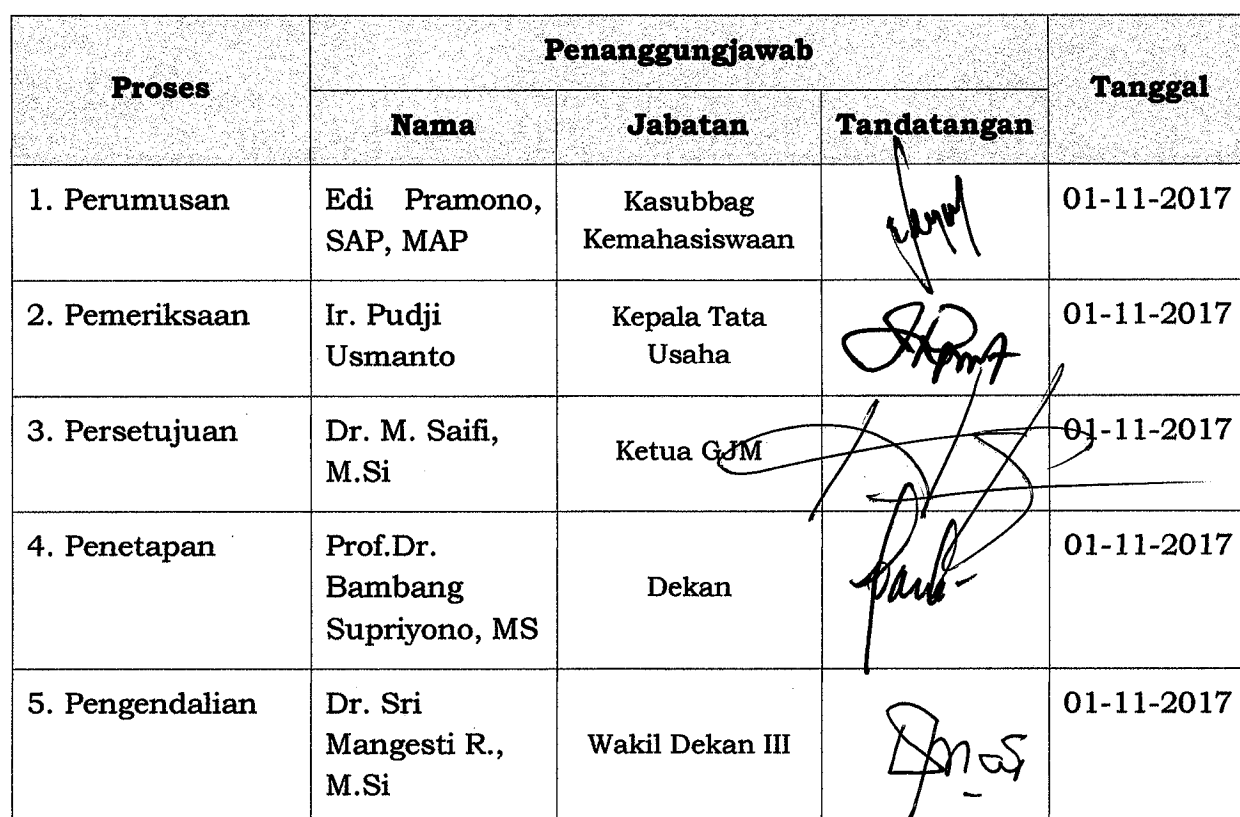 Proses
Penanggungjawab
Tanggal
Nama
Jabatan
Tandatangan
1. Perumusan
Edi Pramono,
SAP, MAP
Kasubbag
Kemahasiswaan
01-11-2017
2. Pemeriksaan
Ir. Pudji
Usmanto
Kepala Tata
Usaha
01-11-2017
3. Persetujuan
Dr. M. Saifi,
M.Si
Ketua GJM
01-11-2017
4. Penetapan
Prof.Dr.
Bambang
Supriyono, MS
Dekan
01-11-2017
5. Pengendalian
Dr. Sri
Mangesti R.,
M.Si
Wakil Dekan III
01-11-2017